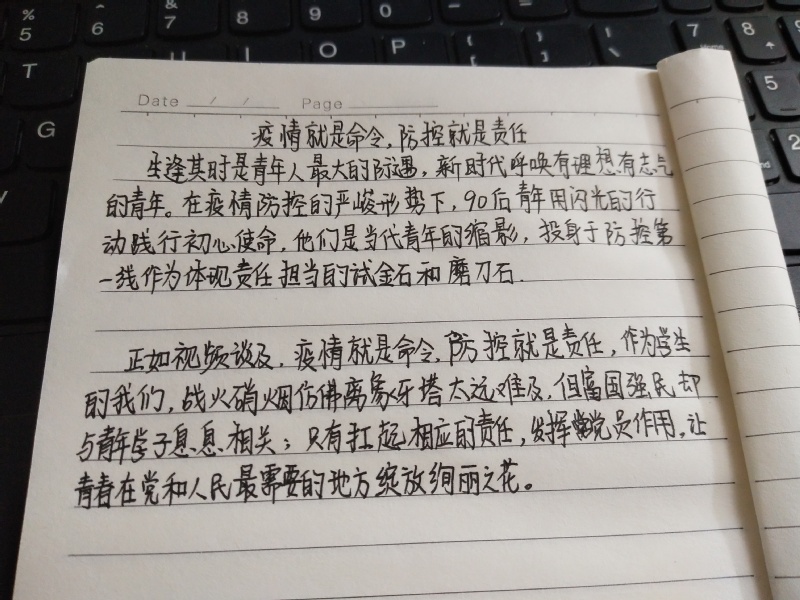 Date / / Page
疫情就是命令，防控就是责任
生逢其时是青年人最大的际遇，新时代呼唤有理想有志气
的青年。在疫情防控的严峻形势下，90后青年用闪光的行
动践行初心使命，他们是当代青年的缩影，投身于防控第
一线作为体现责任担当的试金石和磨刀石.
正如视频谈及，疫情就是命令，防控就是责任，作为学生
的我们，战火硝烟仿佛离象牙塔太远难及，但富国强民却
与青年学子息息相关；只有扛起相应的责任，发挥党员作用，让
青春在党和人民最需要的地方绽放绚丽之花。